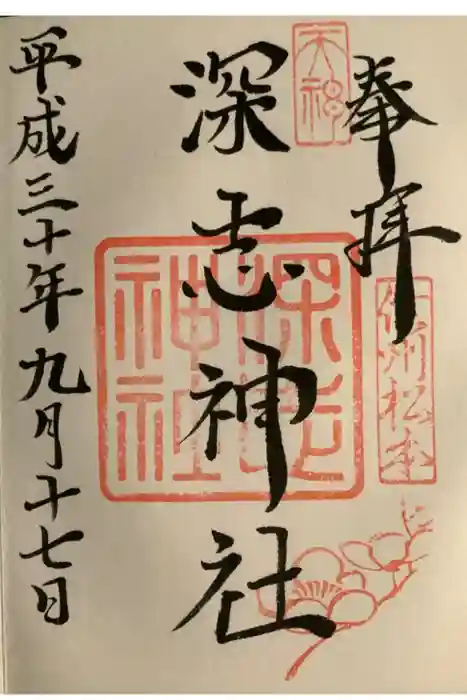 奉拝
天神
信州松本
深志神社
深志神社
平成三十年九月十七日